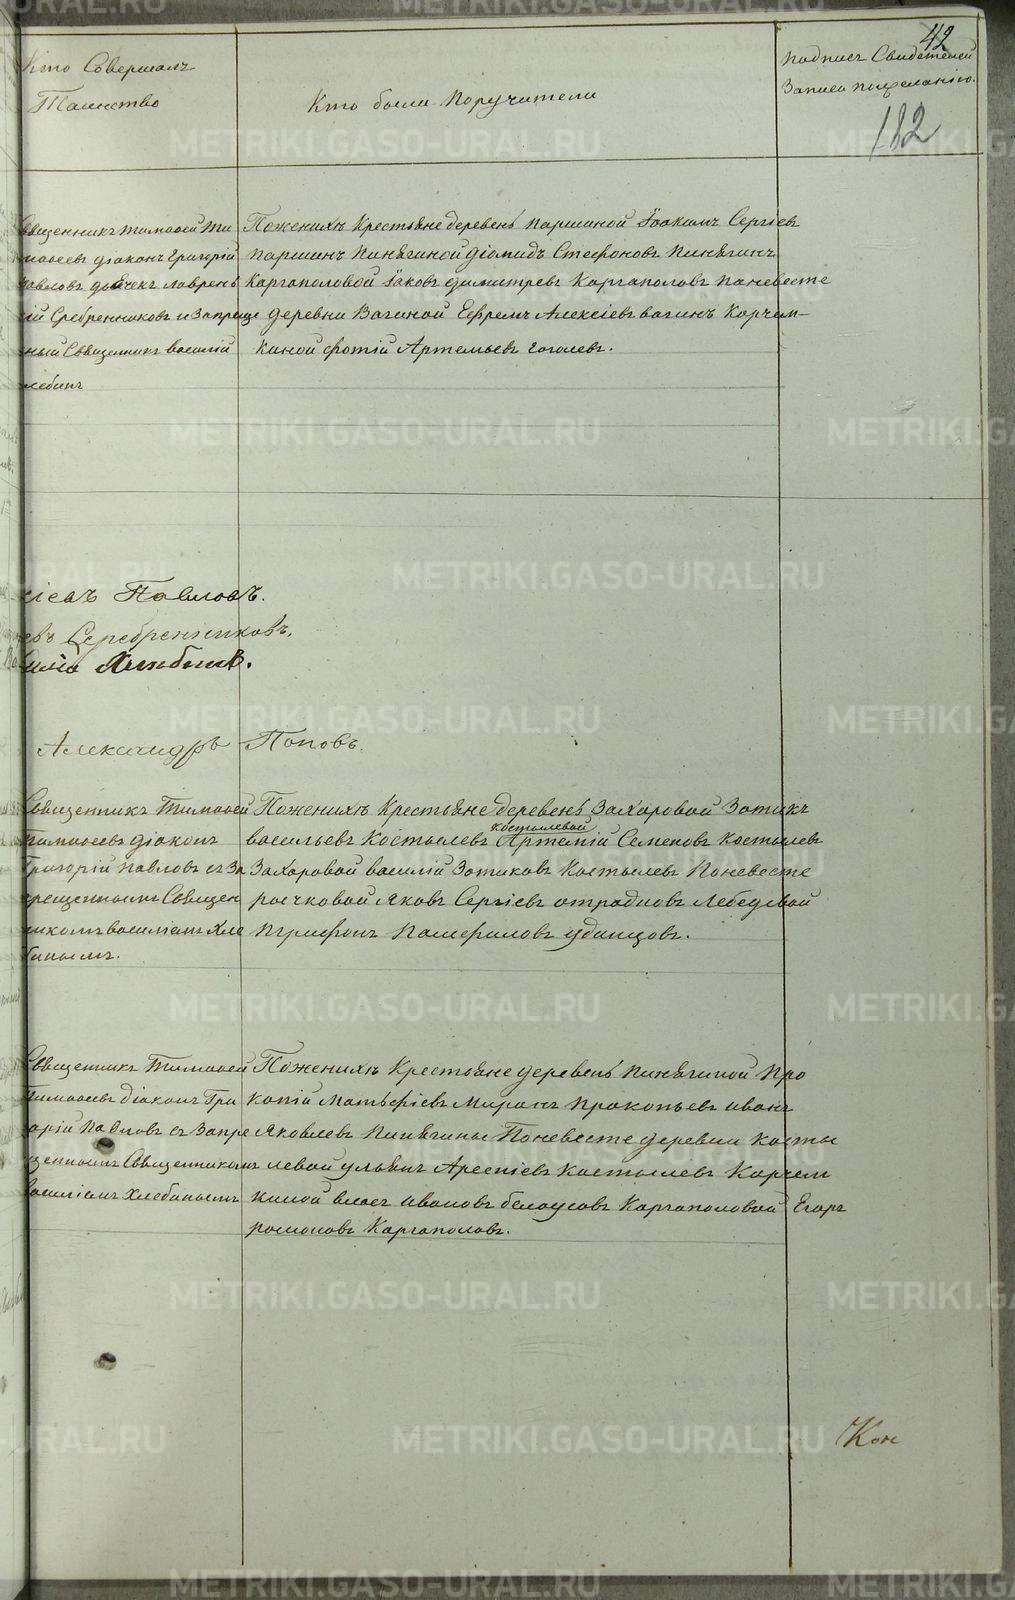 42
Кто Совершалъ
Таинство
Кто были Поручители
Подпись Свидетелей
Записи пожеланію.
182
Священникъ Тимофей Ти
мофеевъ діаконъ Григорій
Павловъ дьячекъ Лаврен
тій Сребренниковъ и Запреще
ный Священникъ Василій
Хлебинъ
Пожених Крестьяне деревень Паршиной Іоакимъ Сергіевъ
Паршинъ Пинягиной Діомидъ Стефоновъ Пинягинъ
Каргаполовой Іаковъ Димитревъ Каргаполовъ Паневесте
деревни Вагиной Ефремъ Алексіевъ Вагинъ Корчем-
киной Фотій Артемьевъ Гоголевъ.
Павловъ.
Серебренниковъ.
Хлебинъ.
Александръ Поповъ.
Священникъ Тимофей
Тимофеевъ діаконъ
Григорій Павловъ съ За
прещеннымъ Священ
никомъ Василіемъ Хле
бинымъ.
Пожених Крестьяне деревень Захаровой Зотикъ
Васильевъ Костылевъ Костылевой Артемій Семеновъ Костылевъ
Захаровой Василій Зотиковъ Костылевъ Поневесте
Яковъ Сергіевъ Отрадновъ Лебедевой
Трифонъ Памфиловъ Уданцовъ.
Священникъ Тимофей
Тимофеевъ діаконъ Гри
горій Павловъ съ Запре
щеннымъ Священникомъ
Василіемъ Хлебинымъ
Пожених Крестьяне деревень Пинягиной Про
копій Матьфіевъ Миронъ Прокопьевъ Иванъ
Яковлевъ Пинягины Поневесте деревни Косты
левой Ульянъ Арсеніевъ Костылевъ Корчем
киной Власъ Ивановъ Белоусовъ Каргаполовой Егоръ
Романовъ Каргаполовъ.
Кон
METRIKI.GASO-URAL.RU